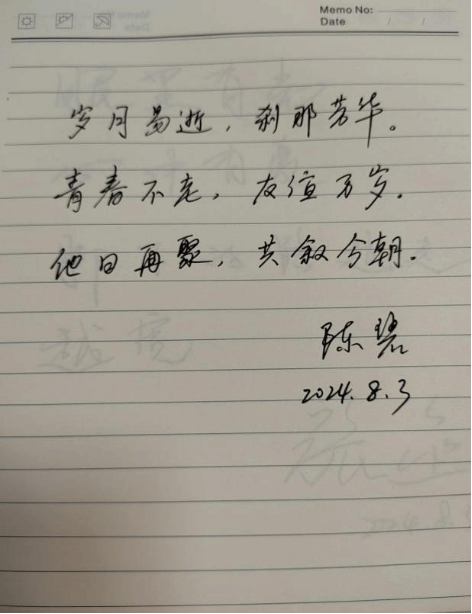 Memo No:
Date / /
岁月易逝，刹那芳华。
青春不老，友谊万岁。
他日再聚，共叙今朝。
陈碧
2024.8.3